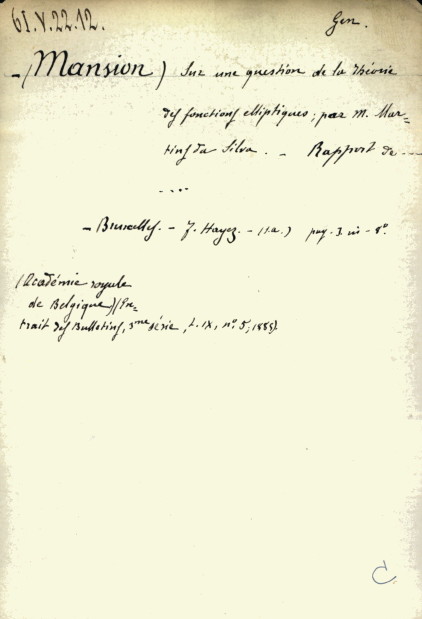 61.V.22.12.
Gen.
- (Mansion) Sur une question de la théorie
des fonctions elliptiques; par M. Mar=
tins da Silva. - Rapport de ---
----
- Bruxelles. - F. Hayez. - (s.a.) pag. 3. in - 8°.
(Académie royale
de Belgique) (Ex=
trait des Bulletins, 3me série, t. IX, n° 5, 1885).
C.